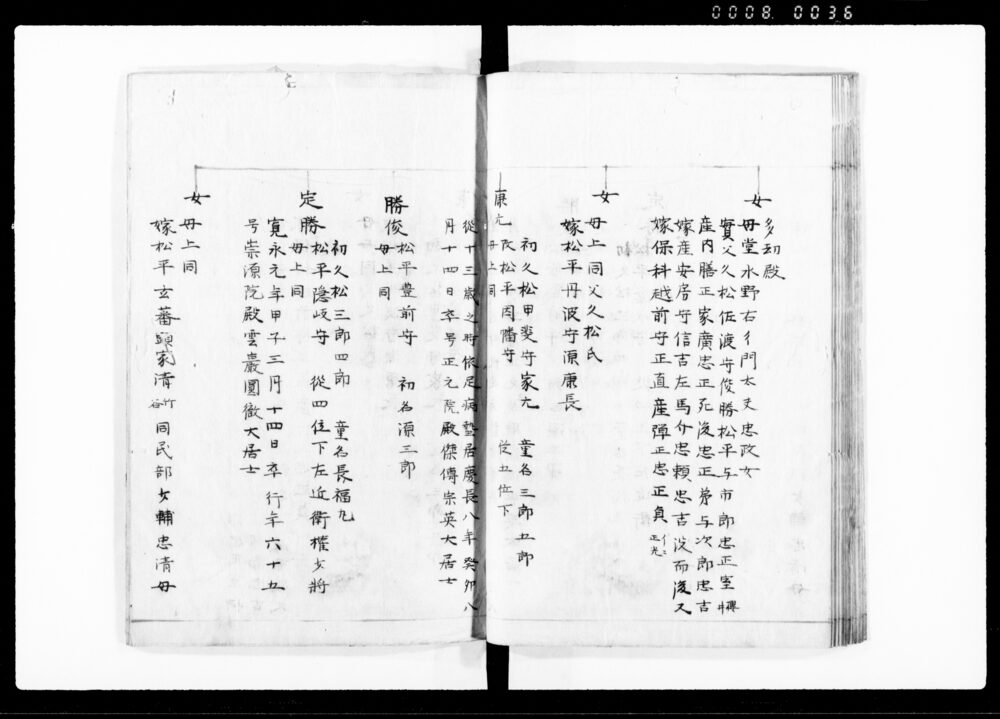 0008 0036
女
多劫殿
母堂水野右ヱ門大夫忠政女
實父久松佐渡守俊勝松平与市郎忠正室櫻井
産内膳正家廣忠正死後忠正弟与次郎忠吉
嫁産安房守信吉左馬介忠頼忠吉没而後又
嫁保科越前守正直産弾正忠正貞イニ正光
女
母上同父久松氏
嫁松平丹波守源康長
康元
初久松甲斐守家元 童名三郎五郎
改松平因幡守 従五位下
母上同
従十三歳之時依足病蟄居慶長八年癸卯八
月十四日卒号正元院殿傑傳宗英大居士
勝俊
松平豊前守 初名源三郎
母上同
定勝
初久松三郎四郎 童名長福丸
松平隠岐守 従四位下左近衛権少将
母上同
寛永元年甲子三月十四日卒行年六十五
号崇源院殿雲巖圓徹大居士
女
母上同
嫁松平玄蕃頭家清竹谷同民部少輔忠清母